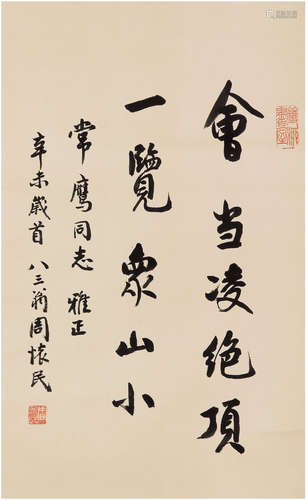 會当凌绝頂
一覽眾山小
常鹰同志 雅正
辛未歲首 八三翁周怀民